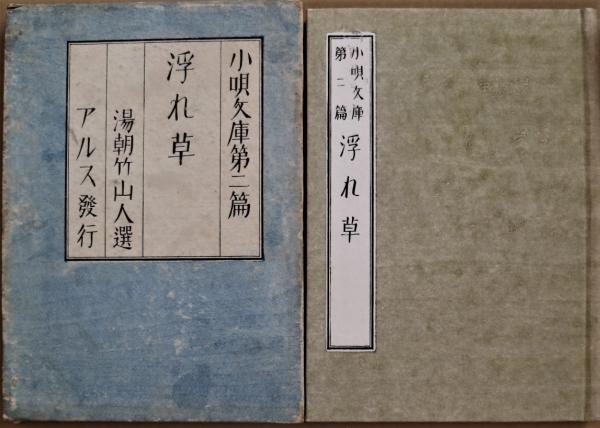 小唄文庫第二篇
浮れ草
湯朝竹山人選
アルス發行
小唄文庫
第二篇
浮れ草